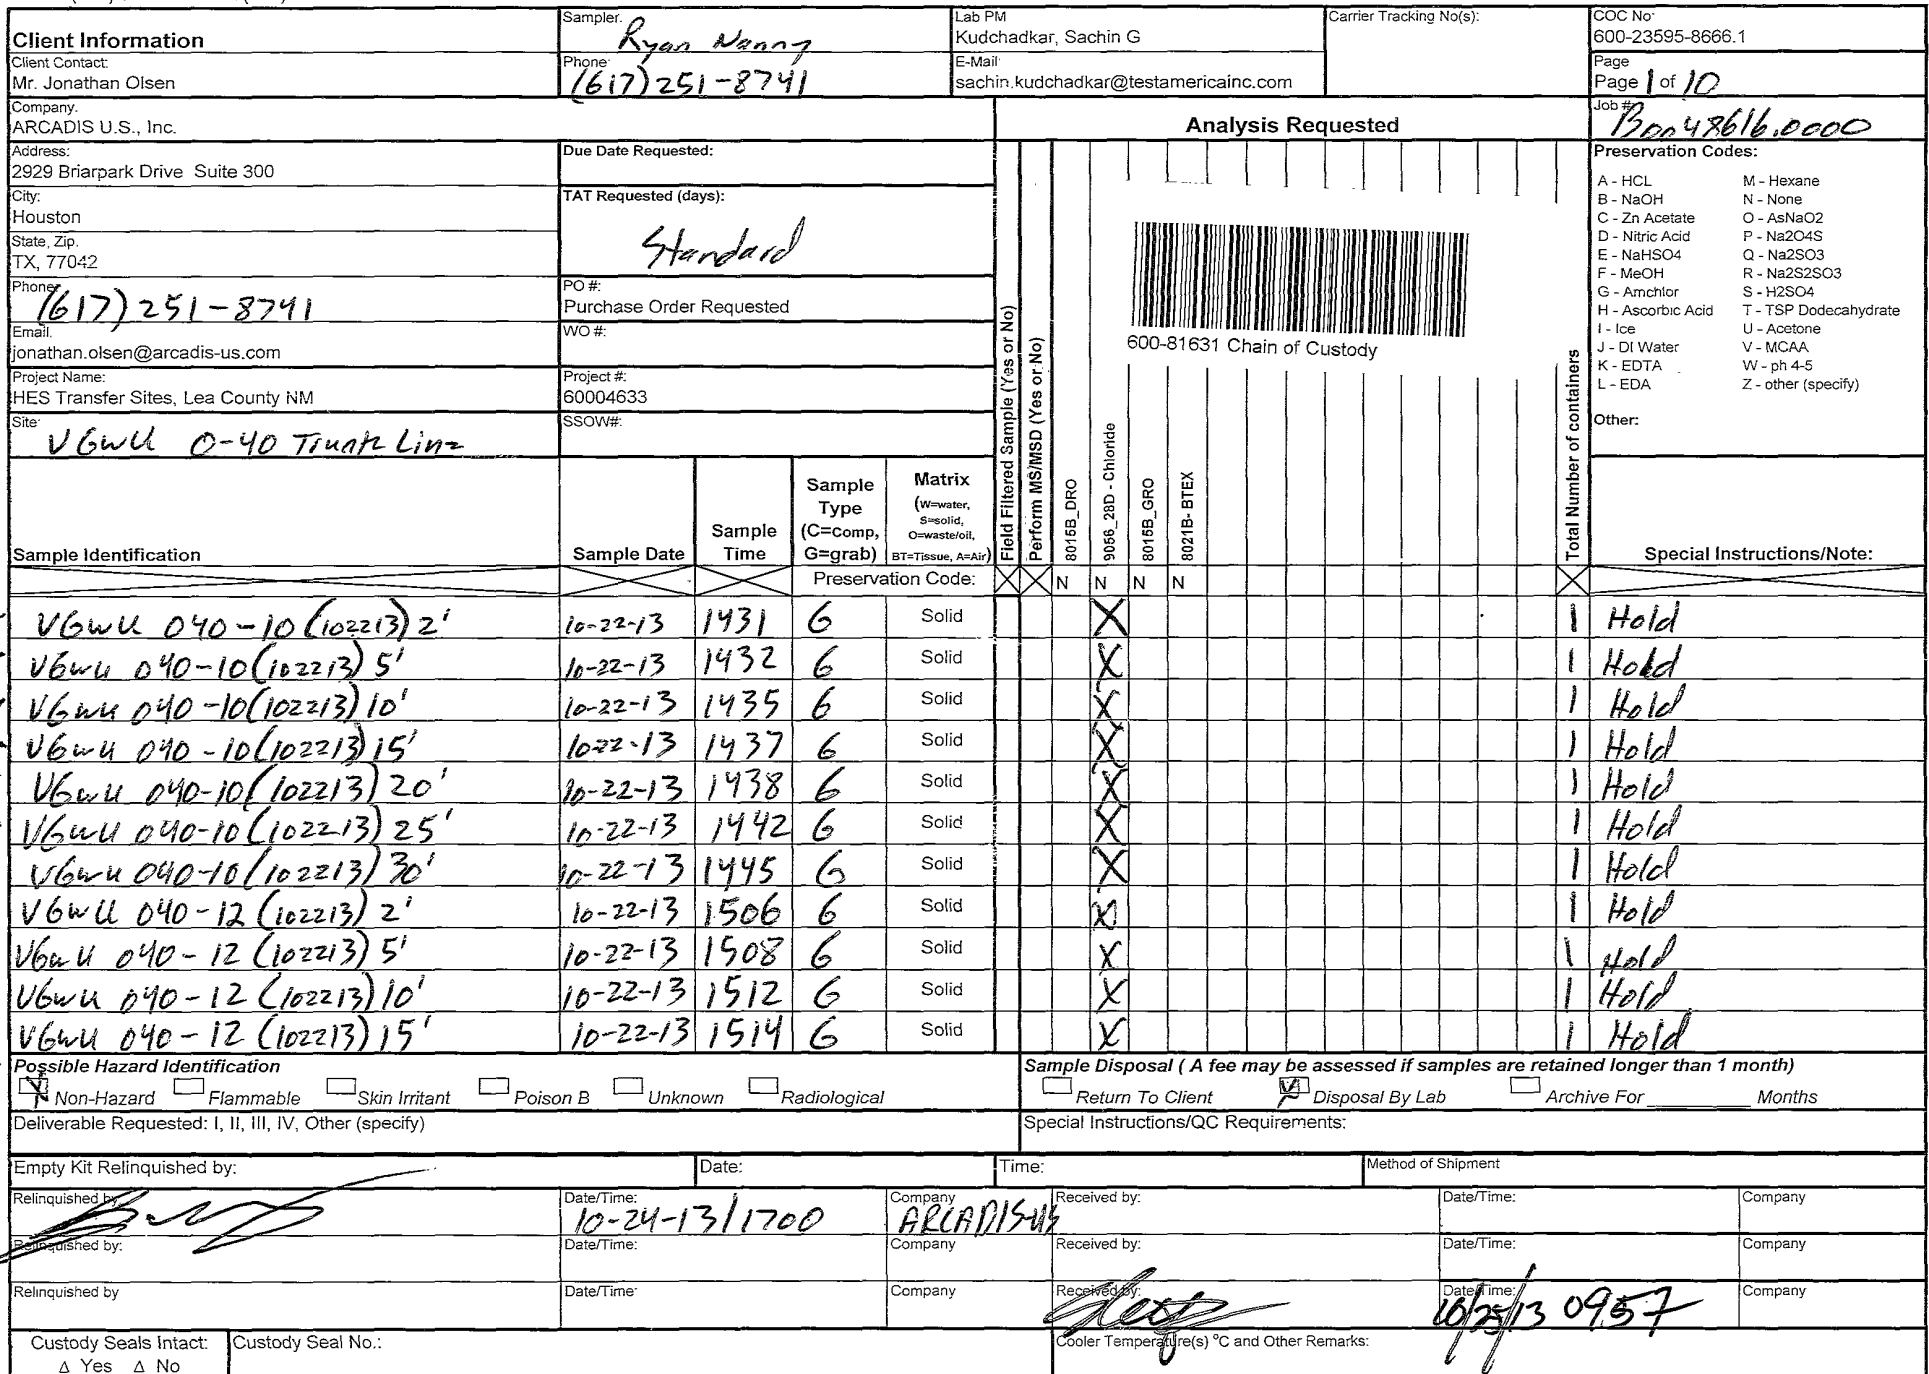 Client Information
Sampler. Ryan Nanny
Lab PM
Kudchadkar, Sachin G
Carrier Tracking No(s):
COC No
600-23595-8666.1
Client Contact:
Mr. Jonathan Olsen
Phone (617) 251-8741
E-Mail
sachin.kudchadkar@testamericainc.com
Page
Page 1 of 10
Company.
ARCADIS U.S., Inc.
Analysis Requested
Job #: B0048616.0000
Address:
2929 Briarpark Drive Suite 300
Due Date Requested:
City:
Houston
TAT Requested (days):
Standard
State, Zip.
TX, 77042
Phone
(617) 251-8741
PO #:
Purchase Order Requested
Email.
jonathan.olsen@arcadis-us.com
WO #:
Project Name:
HES Transfer Sites, Lea County NM
Project #:
60004633
Site
VGWU O-40 Trunk Line
SSOW#:
600-81631 Chain of Custody
Preservation Codes:
A - HCL M - Hexane
B - NaOH N - None
C - Zn Acetate O - AsNaO2
D - Nitric Acid P - Na2O4S
E - NaHSO4 Q - Na2SO3
F - MeOH R - Na2S2SO3
G - Amchlor S - H2SO4
H - Ascorbic Acid T - TSP Dodecahydrate
I - Ice U - Acetone
J - DI Water V - MCAA
K - EDTA W - ph 4-5
L - EDA Z - other (specify)
Other:
Sample Identification
Sample Date
Sample Time
Sample Type (C=comp, G=grab)
Matrix (W=water, S=solid, O=waste/oil, BT=Tissue, A=Air)
Field Filtered Sample (Yes or No)
Perform MS/MSD (Yes or No)
8015B_DRO
9056_28D - Chloride
8015B_GRO
8021B- BTEX
Total Number of containers
Special Instructions/Note:
Preservation Code: N N N N
VGWU 040-10 (102213) 2' 10-22-13 1431 G Solid X 1 Hold
VGWU 040-10 (102213) 5' 10-22-13 1432 G Solid X 1 Hold
VGWU 040-10 (102213) 10' 10-22-13 1435 G Solid X 1 Hold
VGWU 040-10 (102213) 15' 10-22-13 1437 G Solid X 1 Hold
VGWU 040-10 (102213) 20' 10-22-13 1438 G Solid X 1 Hold
VGWU 040-10 (102213) 25' 10-22-13 1442 G Solid X 1 Hold
VGWU 040-10 (102213) 30' 10-22-13 1445 G Solid X 1 Hold
VGWU 040-12 (102213) 2' 10-22-13 1506 G Solid X 1 Hold
VGWU 040-12 (102213) 5' 10-22-13 1508 G Solid X 1 Hold
VGWU 040-12 (102213) 10' 10-22-13 1512 G Solid X 1 Hold
VGWU 040-12 (102213) 15' 10-22-13 1514 G Solid X 1 Hold
Possible Hazard Identification
X Non-Hazard Flammable Skin Irritant Poison B Unknown Radiological
Sample Disposal ( A fee may be assessed if samples are retained longer than 1 month)
Return To Client X Disposal By Lab Archive For Months
Deliverable Requested: I, II, III, IV, Other (specify)
Special Instructions/QC Requirements:
Empty Kit Relinquished by:
Date:
Time:
Method of Shipment
Relinquished by
Date/Time: 10-24-13/1700
Company ARCADIS-US
Received by:
Date/Time:
Company
Relinquished by:
Date/Time:
Company
Received by:
Date/Time:
Company
Relinquished by
Date/Time
Company
Received by:
Date/Time: 10/25/13 0957
Company
Custody Seals Intact:
Δ Yes Δ No
Custody Seal No.:
Cooler Temperature(s) °C and Other Remarks: